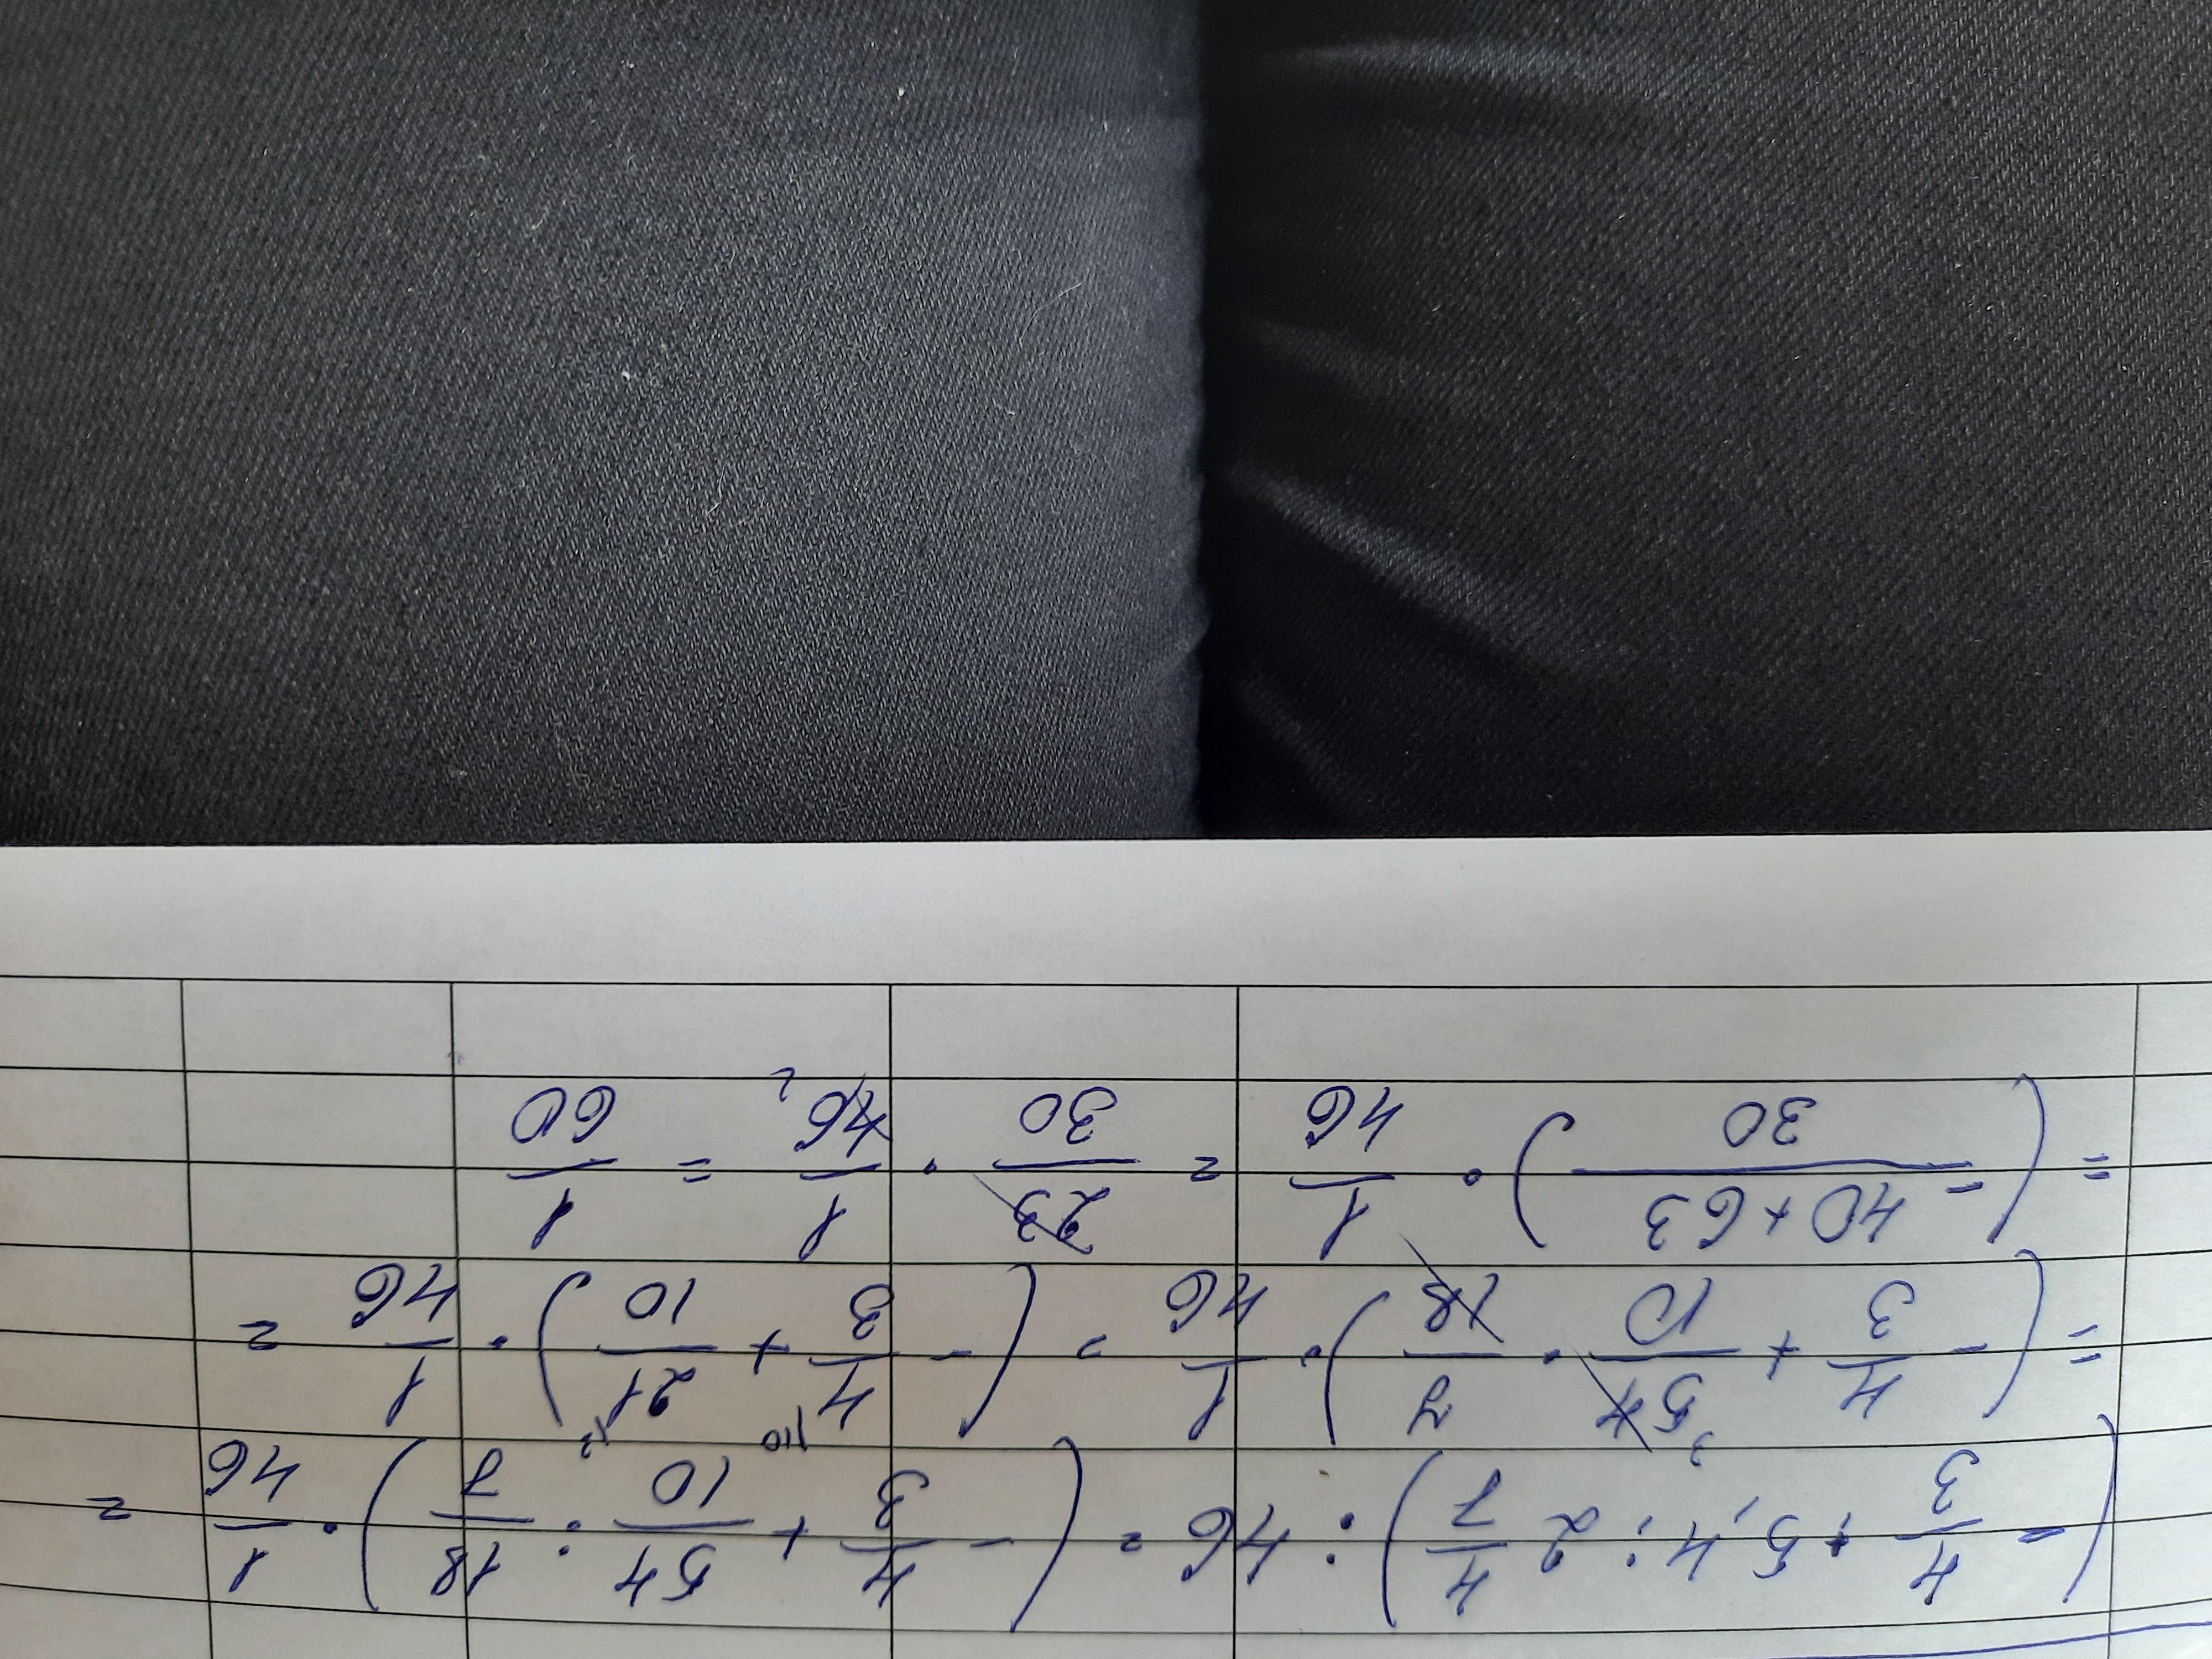 (-4/3 + 5,4 : 2 4/7) : 46 = (-4/3 + 54/10 : 18/7) · 1/46 =
= (-4/3 + 54/10 · 7/18) · 1/46 = (-4/3 + 21/10) · 1/46 =
= (-40+63/30) · 1/46 = 23/30 · 1/46 = 1/60